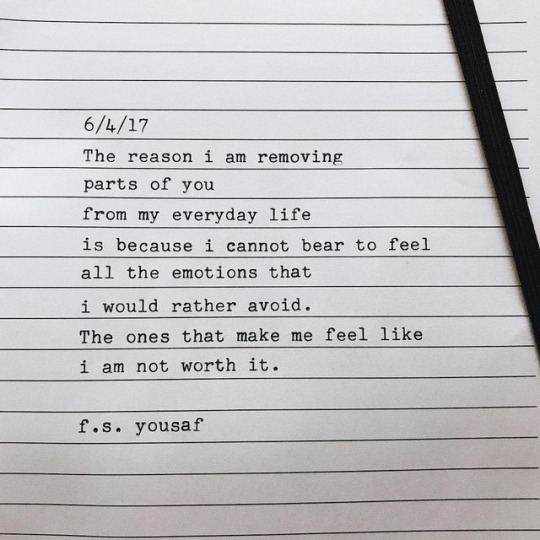 6/4/17
The reason i am removing
parts of you
from my everyday life
is because i cannot bear to feel
all the emotions that
i would rather avoid.
The ones that make me feel like
i am not worth it.
f.s. yousaf